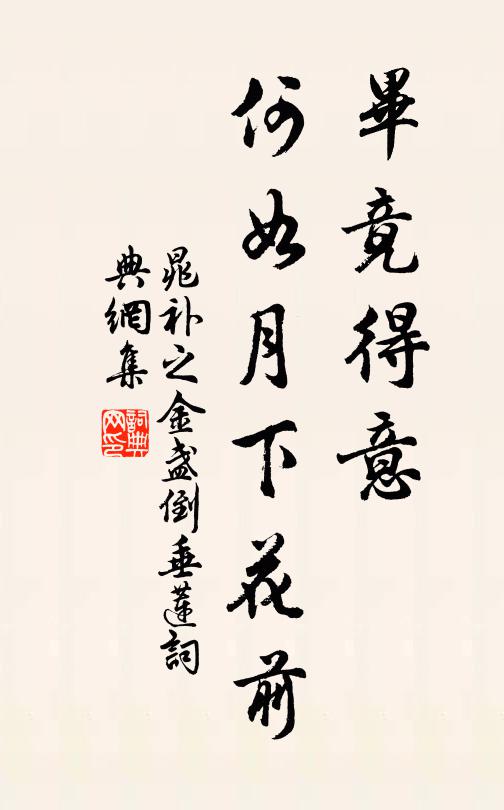 畢竟得意
何如月下花前
晁补之金盞倒垂蓮詞
典網集
詞典網印